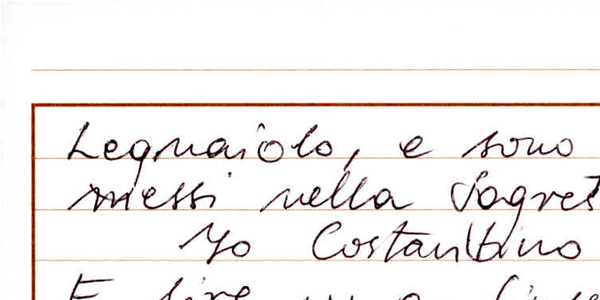 Legnaiolo, e sono
messi nella Sagres
Yo Costantino
E